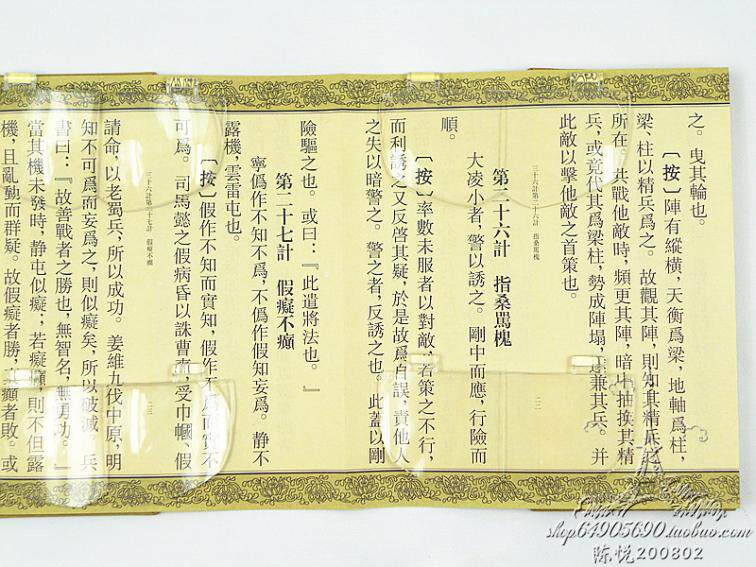 之。曳其輪也。
〔按〕陣有縱橫，天衡爲梁，地軸爲柱，
梁、柱以精兵爲之。故觀其陣，則知其精兵之
所在。共戰他敵時，頻更其陣，暗中抽換其精
兵，或竟代其爲梁柱，勢成陣塌，遂兼其兵。并
此敵以擊他敵之首策也。
三十六計第二十六計 指桑罵槐
二二
第二十六計 指桑罵槐
大凌小者，警以誘之。剛中而應，行險而
順。
〔按〕率數未服者以對敵，若策之不行，
而利誘之又反啓其疑，於是故爲自誤，責他人
之失以暗警之。警之者，反誘之也。此蓋以剛
險驅之也。或曰：『此遣將法也。』
第二十七計 假癡不癲
寧僞作不知不爲，不僞作假知妄爲。静不
露機，雲雷屯也。
〔按〕假作不知而實知，假作不爲而實不
可爲。司馬懿之假病昏以誅曹爽，受巾幗、假
三十六計第二十七計 假癡不癲
二三
請命，以老蜀兵，所以成功。姜維九伐中原，明
知不可爲而妄爲之，則似癡矣，所以破滅。兵
書曰：『故善戰者之勝也，無智名，無勇功。』
當其機未發時，静屯似癡；若癡癲，則不但露
機，且亂動而群疑。故假癡者勝，癲者敗。或
shop64905690.taobao.com
陈悦200802